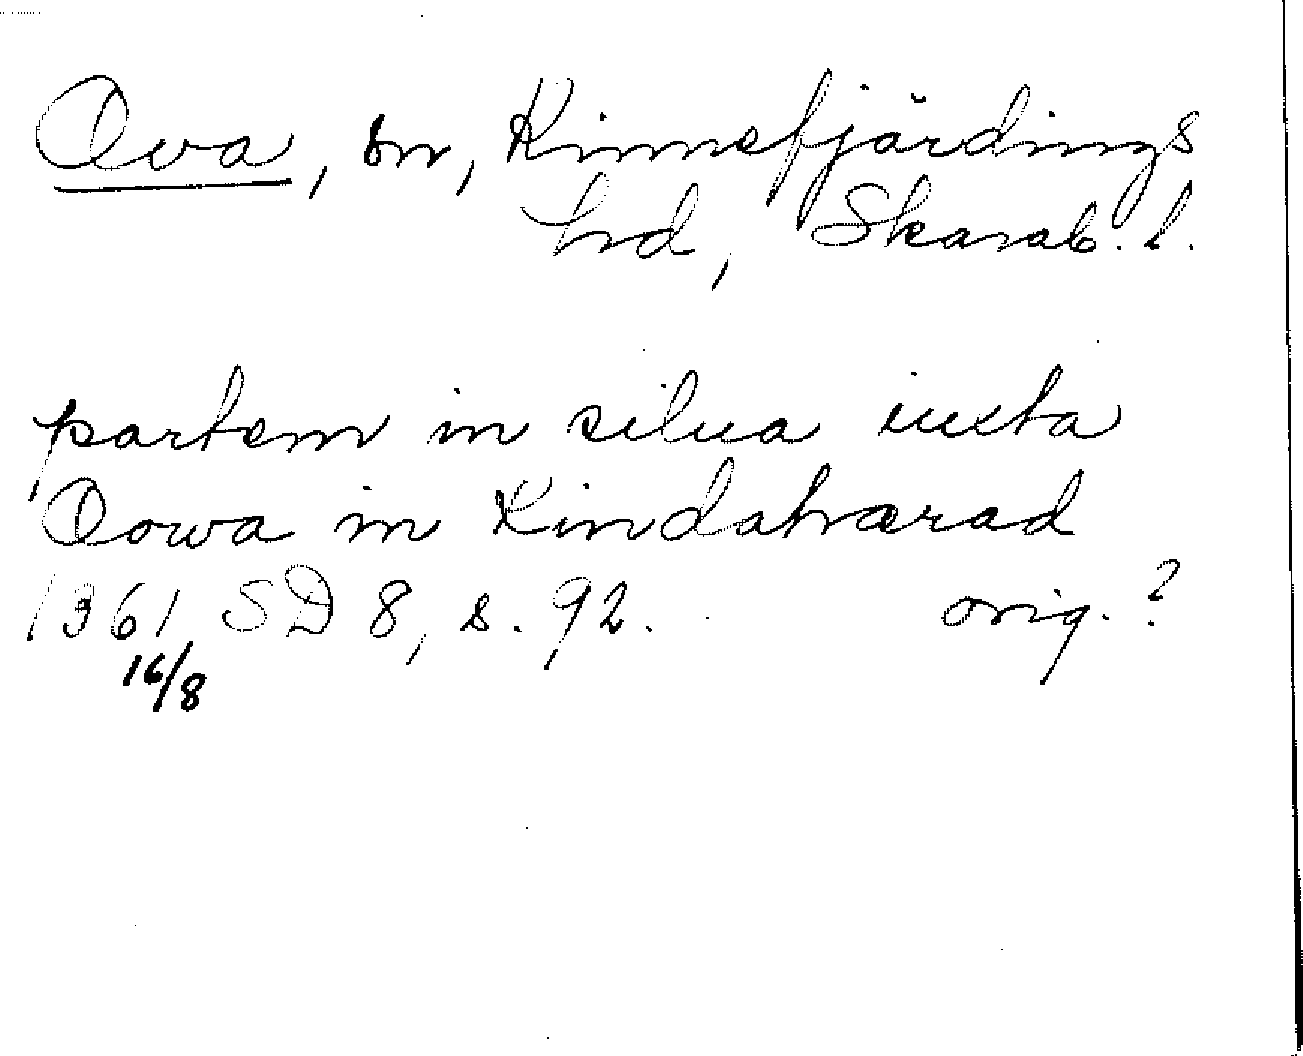 Ova, sn, Kinnefjärdings
hd, Skarab. l.
partem in silua iuxta
Oowa in Kindahærad
1361 SD 8, s. 92. orig. ?
16/8